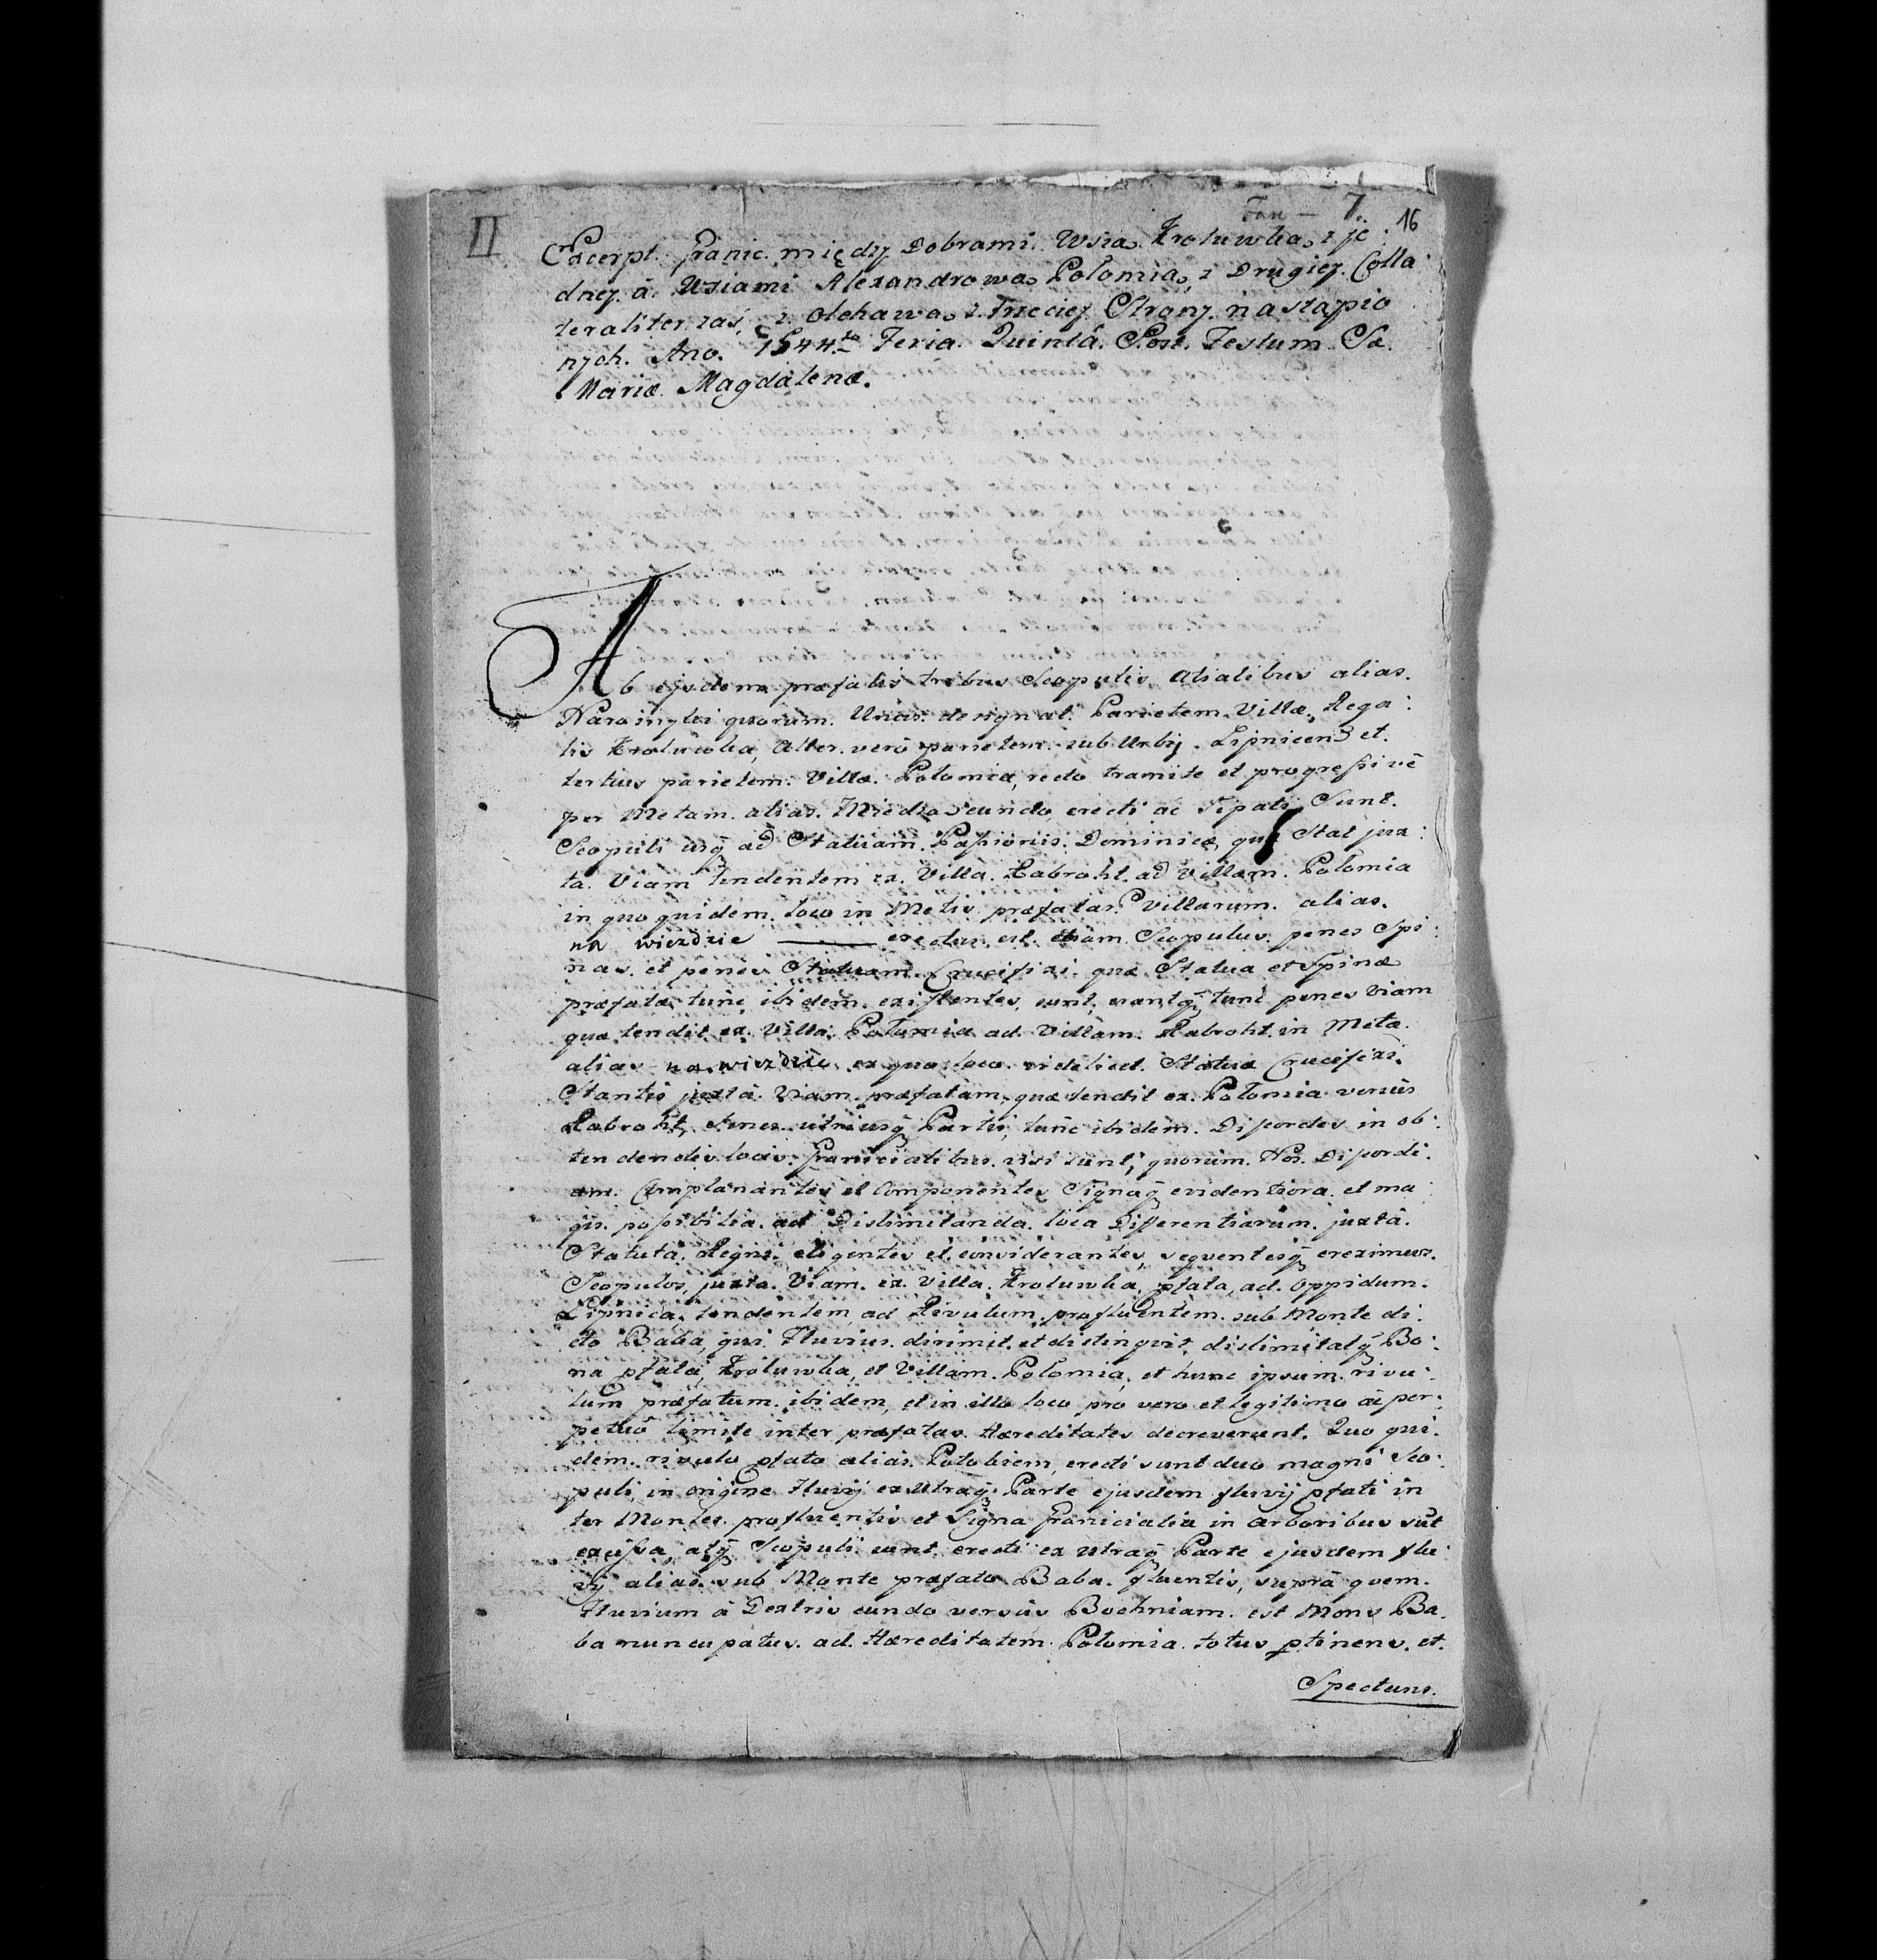 II
Fan — 7. 16
Excerpt. Granic. między Dobrami. Wsią. Kroluwką, z je:
dney. á. Wsiami Alexandrową Połomią, z Drugiey. Colla:
teraliter zaś, z. Olchawą z. trzeciey Strony. nastąpio
nych. Ano. 1544to Feria. Quintâ. Post. Festum Sæ.
Mariæ. Magdalenæ.
Ab ejsdem præfatis tribus Scopulis Atialibus alias.
Naroinyki quorum. Unus. designat. Parietem. Villæ. Rega:
lis Kroluwka, Alter. verò parietem. sub Urbij. Lipnicens et.
tertius parietem. Villæ. Połomia, recto tramite et progressivè
per Metam. alias. Miedzą eundo, erecti ac Sipati Sunt.
Scopuli usq ad Statuam. Passionis. Dominicæ, quæ Stat jux:
ta. Viam tendentem ex. Villa. Rabroht. ad Villam. Połomia
in quo quidem. loco in Metis præfatar. Villarum. alias.
na wiezdzie ——— erectus. est. etiam Scopulus. penes Spi:
nas. et penes Statuam. Crucifixi. quæ Statua et Spinæ
præfatæ tunc ibidem. existentes, sunt, erantq tunc penes Viam
quæ tendit ex. Villa. Połomia ad. Villam. Rabroht. in Meta.
alias na wiezdzie ex quo loco. videlicet. Statua Crucifixi.
Stantis juxtà Viam. præfatam, quæ tendit ex. Połomia versus
Rabroht, Senes utriusq Partis, tunc ibidem. Discordes in ob:
tendendis locis. Granicialibus. visi sunt; quorum. Nos. Discordi:
am. Complanantes et Componentes Signaq evidentiora. et ma:
gis. possibilia. ad Dislimitanda. loca Differentiarum. juxtà.
Statuta. Regni. eligentes et. considerantes, sequentesq ereximus.
Scopulos, juxta. Viam. ex. Villa. Kroluwka, pfata, ad. Oppidum.
Lipnica. tendentem, ad Rivulum. profluentem. sub Monte di:
cto Baba, qui. Fluvius. dirimit. et distinguit, dislimitatq Bo:
na pfata, Kroluwka, et Villam. Połomia, et hunc ipsum. rivu:
lum præfatum. ibidem, et in illo loco, pro vero et legitimo ac per:
petuo limite inter præfatas. Hæreditates decreverunt. Quo qui:
dem. rivulo pfato alias. Potokiem, erecti sunt duo magni Sco:
puli, in origine Fluvij ex Utraq. Parte ejusdem fluvij pfati in
ter Montes. profluentis et Signa Granicialia in arboribus sut
excissa, alÿ Scopuli sunt. erecti ex Utraq Parte ejusdem flu:
vÿ alias. sub Monte præfato Baba. fluentis, suprà quem.
Fluvium à Dextris eundo versùs Bochniam. est Mons Ba:
ba nuncupatus. ad. Hæreditatem. Połomia. totus ptinens. et.
Spectans.